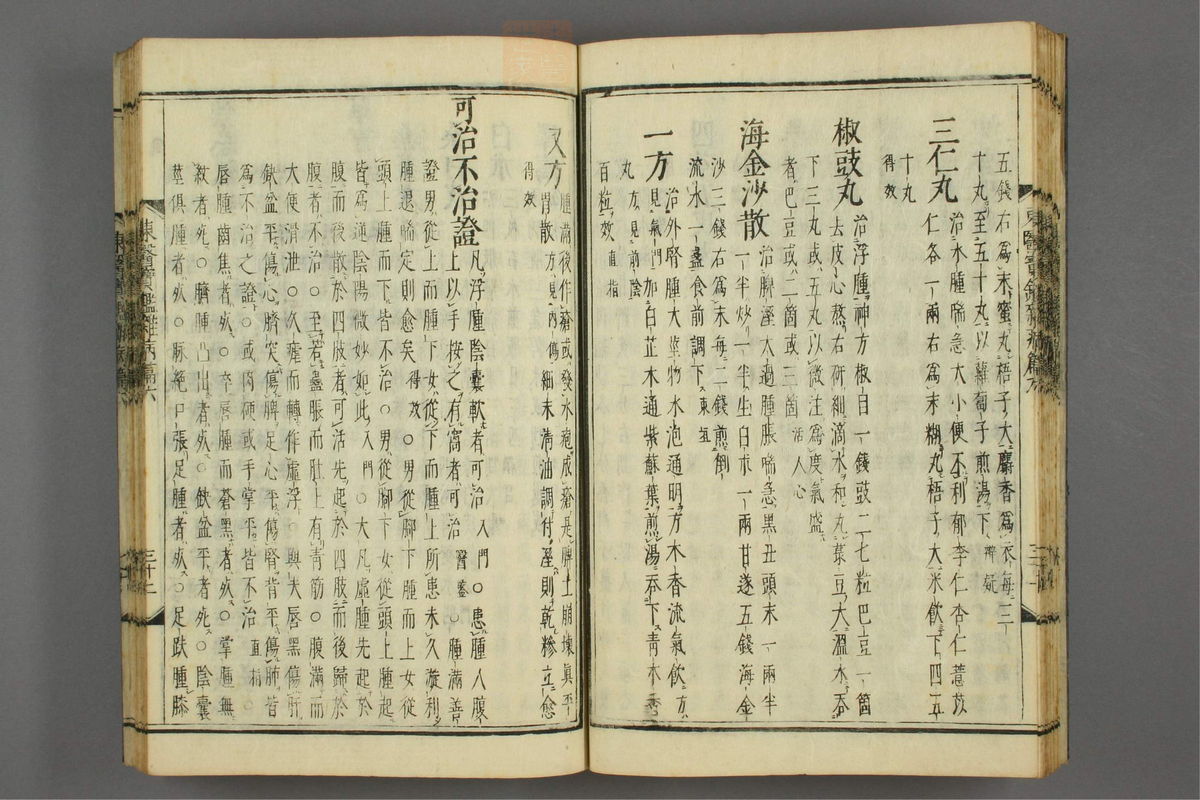 五錢右爲末蜜丸梧子大麝香爲衣每三
十丸至五十丸以蘿蔔子煎湯下
三仁丸治水腫喘急大小便不利郁李仁杏仁薏苡
仁各一兩右爲末糊丸梧子大米飮下四五
十丸
得效
椒豉丸治浮腫神方椒目一錢豉二七粒巴豆一箇
去皮心熬右硏細滴水和丸菉豆大溫水吞
下三丸或五丸以微注爲度氣盛
者巴豆或二箇或三箇活人心
海金沙散治脾溼太過腫脹喘急黑丑頭末一兩半
一半炒一半生白朮一兩甘遂五錢海金
沙三錢右爲末每二錢煎倒
流水一盞食前調下東垣
一方治外腎腫大莖物水泡通明方木香流氣飮方
見氣門加白芷木通紫蘇葉煎湯吞下靑木香
丸方見前陰
百粒效直指
又方腫滿後作瘡或發水疱成瘡是脾土崩壞眞平
胃散方見內傷細末淸油調付溼則乾糝立愈
得效
可治不治證凡浮腫陰囊軟者可治入門○患腫人腹
上以手按之有窩者可治醫鑒○腫滿善
證男從上而腫下女從下而腫上所患未久漩利
腫退喘定則愈矣得效○男從脚下腫而上女從
頭上腫而下皆不治○男從脚下女從頭上腫起
皆爲逆陰陽微妙如此入門○大凡虛腫先起於
腹而後散於四肢者可活先起於四肢而後歸於
腹者不治○至若蠱脹而肚上有靑筋○腹滿而
大便滑泄○久瘧而轉作虛浮○與夫唇黑傷肝
缺盆平傷心臍突傷脾足心平傷腎背平傷肺皆
爲不治之證○或肉硬或手掌平皆不治直指
唇腫齒焦者死○卒唇腫而蒼黑者死○掌腫無
紋者死○臍腫凸出者死○缺盆平者死○陰囊
莖俱腫者死○脉絶口張足腫者死○足趺腫膝